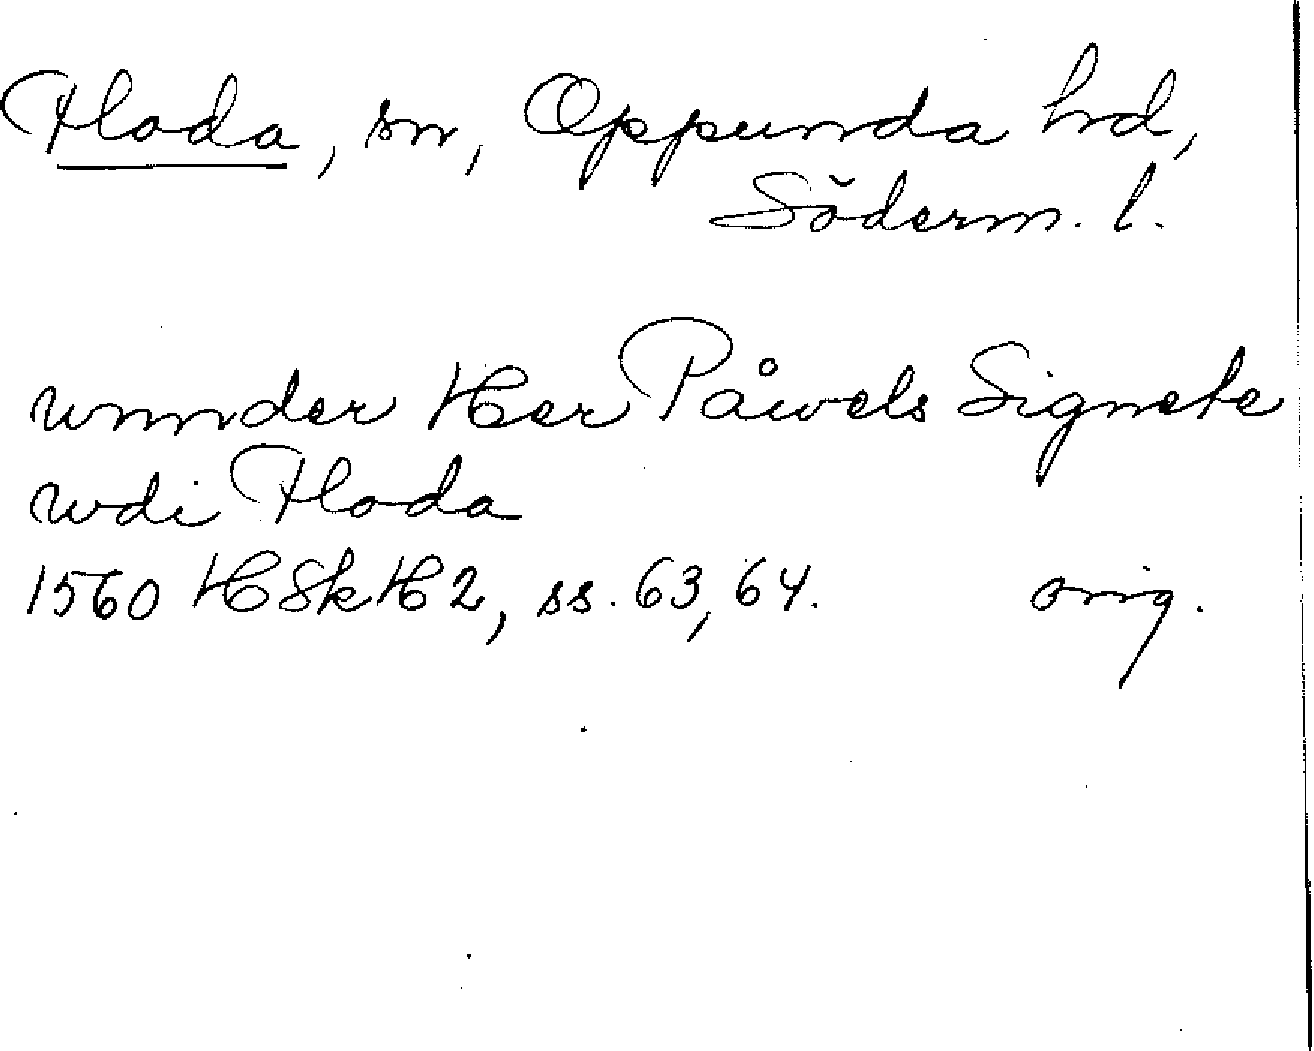 Floda, sn, Oppunda hd,
Söderm. l.
wnnder Her Påwels Signete
wdi Floda
1560 HSkH 2, ss. 63, 64. orig.